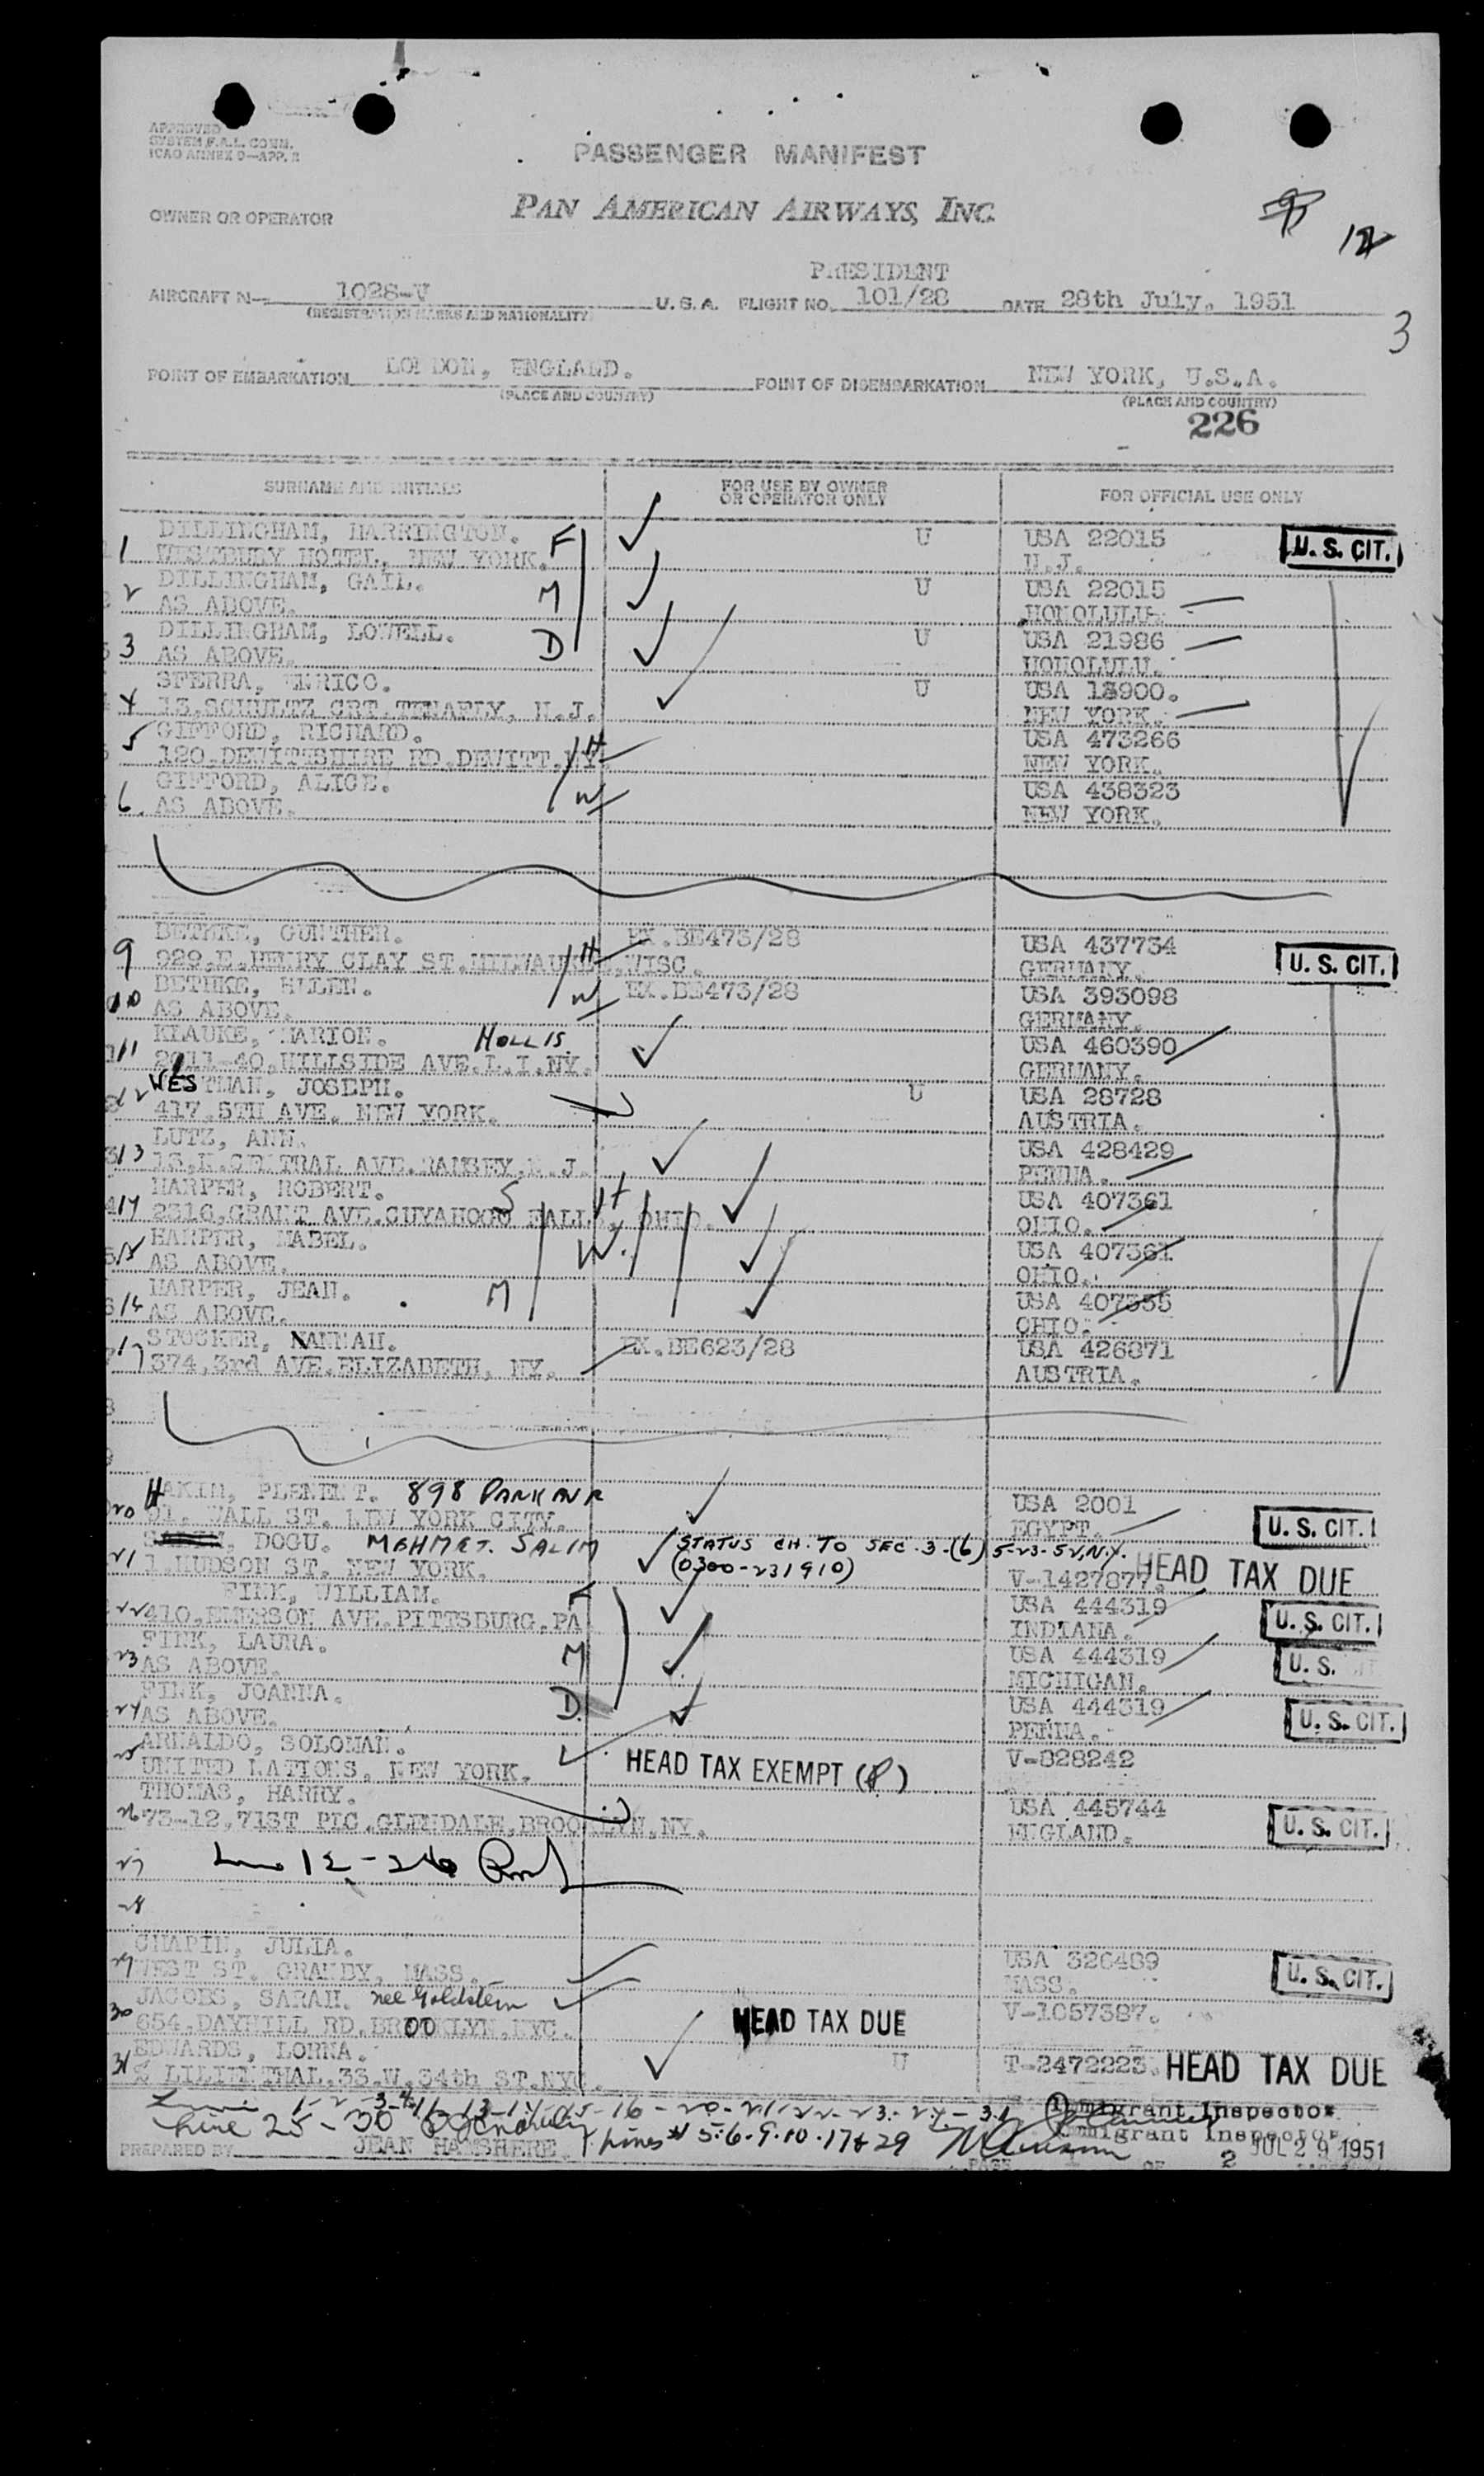 APPROVED
SYSTEM F.A.L. COMM.
ICAO ANNEX 9—APP. 2
PASSENGER MANIFEST
OWNER OR OPERATOR
PAN AMERICAN AIRWAYS, INC.
12
PRESIDENT
AIRCRAFT N— 1028-V U.S.A. FLIGHT NO. 101/28 DATE 28th July, 1951
(REGISTRATION MARKS AND NATIONALITY)
3
POINT OF EMBARKATION LONDON, ENGLAND. POINT OF DISEMBARKATION NEW YORK, U.S.A.
(PLACE AND COUNTRY) (PLACE AND COUNTRY)
226
SURNAME AND INITIALS FOR USE BY OWNER OR OPERATOR ONLY FOR OFFICIAL USE ONLY
DILLINGHAM, HARRINGTON. F U USA 22015 U. S. CIT.
1 WESTBURY HOTEL, NEW YORK. N.J.
DILLINGHAM, GAIL. M U USA 22015
2 AS ABOVE. HONOLULU.
DILLINGHAM, LOWELL. D U USA 21986
3 AS ABOVE. HONOLULU.
SFERRA, ENRICO. U USA 18900.
4 13, SCHULTZ CRT. TENAFLY, N.J. NEW YORK.
GIFFORD, RICHARD. H USA 473266
5 120, DEWITTSHIRE RD. DEWITT. NY. NEW YORK.
GIFFORD, ALICE. W USA 438323
6. AS ABOVE. NEW YORK.
BETHKE, GUNTHER. H EX.BE473/28 USA 437734 U. S. CIT.
9 929, E. HENRY CLAY ST. MILWAUKEE, WISC. GERMANY.
BETHKE, HELEN. W EX.BE473/28 USA 393098
10 AS ABOVE. GERMANY.
KLAUKE, MARION. HOLLIS. USA 460390
11 2011-40, HILLSIDE AVE. L.I.NY. GERMANY.
WESTMAN, JOSEPH. U USA 28728
12 417, 5TH AVE. NEW YORK. AUSTRIA.
LUTZ, ANN. USA 428429
13 13, N. CENTRAL AVE. RAMSEY, N.J. PENNA.
HARPER, ROBERT. S H USA 407361
14 2316, GRANT AVE. CUYAHOGA FALLS, OHIO. OHIO.
HARPER, MABEL. W. USA 407361
15 AS ABOVE. OHIO.
HARPER, JEAN. M USA 407355
16 AS ABOVE. OHIO.
STOCKER, HANNAH. EX.BE623/28 USA 426871
17 374, 3rd AVE. ELIZABETH, NY. AUSTRIA.
HAKIM, 898 PARK AVE USA 2001 U. S. CIT.
20 WALL ST. NEW YORK CITY. EGYPT.
DOGU. MEHMET. SALIM STATUS CH. TO SEC. 3-(6) 5-23-52, N.Y.
21 1, HUDSON ST. NEW YORK. (0300-231910) V-1427877. HEAD TAX DUE
FINK, WILLIAM. F USA 444319 U. S. CIT.
22 410, EMERSON AVE. PITTSBURG, PA INDIANA.
FINK, LAURA. M USA 444319 U. S.
23 AS ABOVE. MICHIGAN.
FINK, JOANNA. D. USA 444319 U. S. CIT.
24 AS ABOVE. PENNA.
ARNALDO, SOLOMAN. HEAD TAX EXEMPT V-828242
25 UNITED NATIONS, NEW YORK.
THOMAS, HARRY. USA 445744 U. S. CIT.
26 73-12, 71ST PLC. GLENDALE, BROOKLYN, NY. ENGLAND.
27 12-26
28
CHAPIN, JULIA. USA 326489 U. S. CIT.
29 WEST ST. GRANBY, MASS. MASS.
JACOBS, SARAH. nee Goldstein HEAD TAX DUE V-1057387.
30 654, DAYHILL RD. BROOKLYN, NYC.
EDWARDS, LORNA. U T-2472223. HEAD TAX DUE
31 % LILIENTHAL, 33, W. 34th ST. NYC.
1-2-3-4-11-13-14-15-16-20-21-22-23-24-31 Immigrant Inspector
Line 25-30 Lines 5-6-9-10-17 & 29 Immigrant Inspector
PREPARED BY JEAN HAMSHERE JUL 29 1951
PAGE 1 OF 2